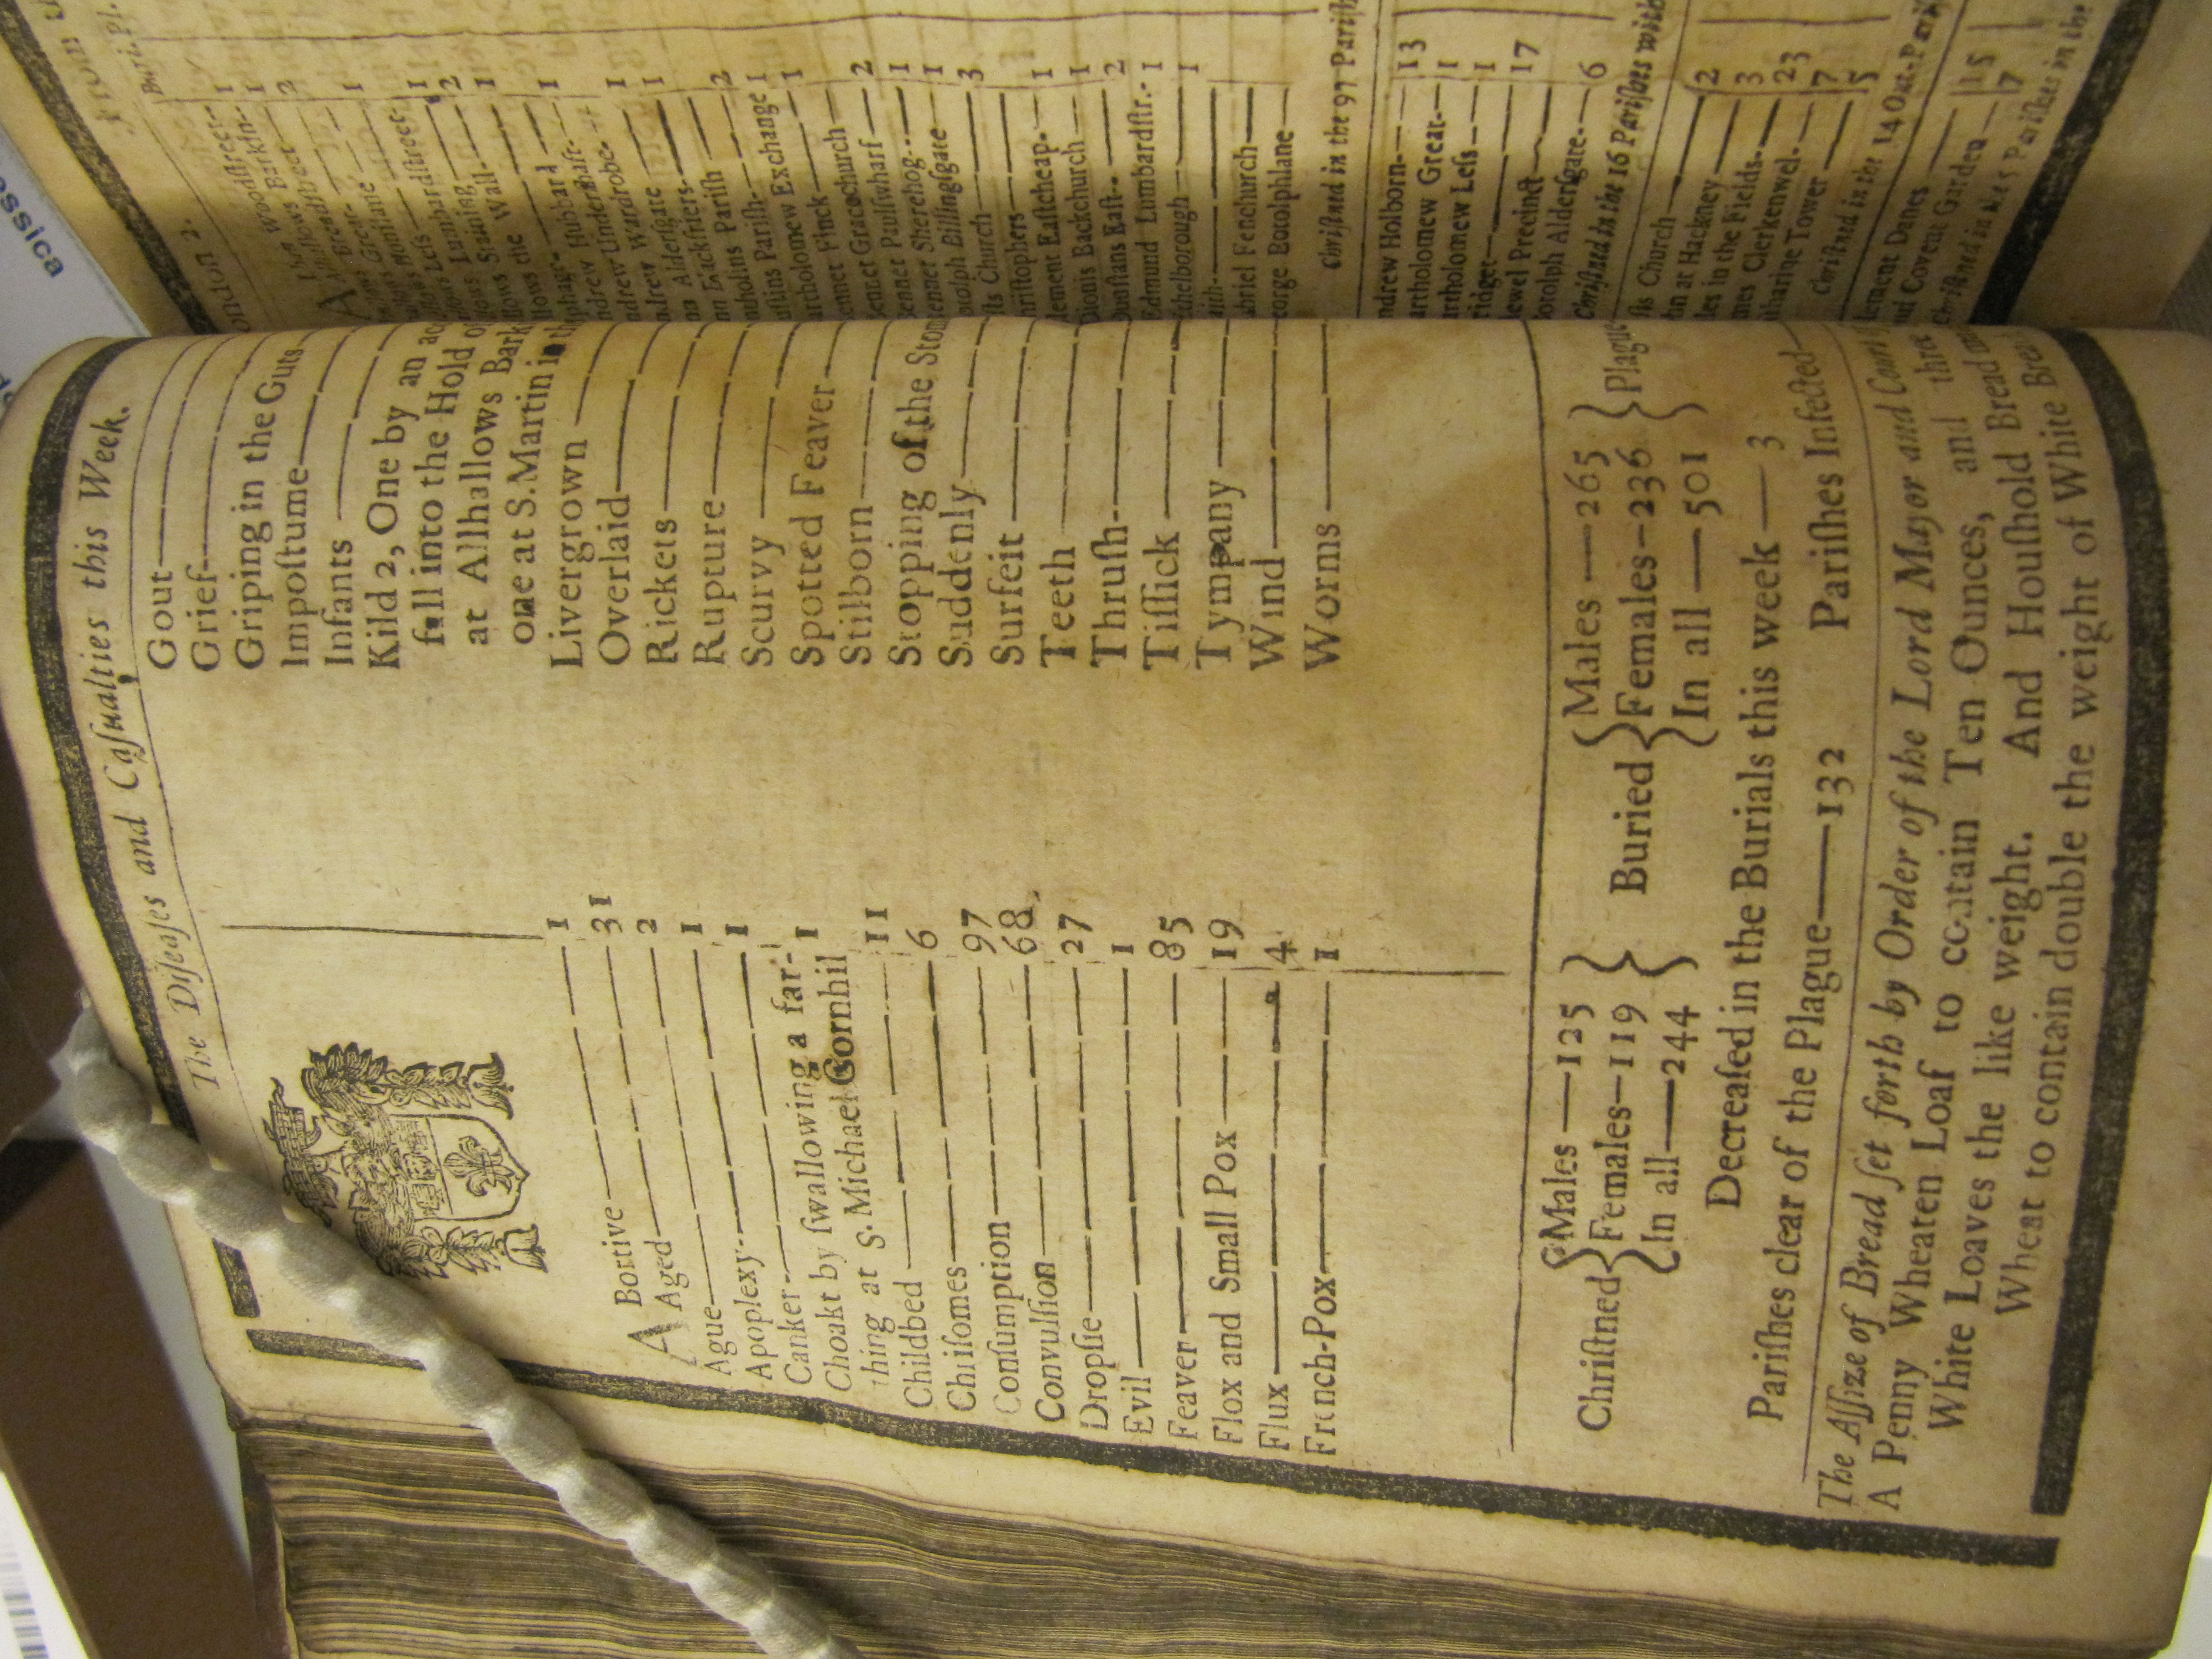 The Diſeaſes and Caſualties this Week.
A Bortive 1
Aged 31
Ague 2
Apoplexy 1
Canker 1
Choakt by ſwallowing a far-
thing at S. Michael Cornhil 1
Childbed 11
Chriſomes 6
Conſumption 97
Convulſion 68
Dropſie 27
Evil 1
Feaver 85
Flox and Small Pox 19
Flux 4
French-Pox 1
Gout
Grief
Griping in the Guts
Impoſtume
Infants
Kild 2, One by an
fall into the Hold
at Allhallows Bark
one at S. Martin in
Livergrown
Overlaid
Rickets
Rupture
Scurvy
Spotted Feaver
Stilborn
Stopping of the Stom
Suddenly
Surfeit
Teeth
Thruſh
Tiſſick
Tympany
Wind
Worms
Chriſtned { Males — 125 Females — 119 In all — 244 } Buried { Males — 265 Females — 236 In all — 501 } Plague
Decreaſed in the Burials this week — 3
Pariſhes clear of the Plague — 132 Pariſhes Infected
The Aſſize of Bread ſet forth by Order of the Lord Mayor and Court
A Penny Wheaten Loaf to contain Ten Ounces, and three
White Loaves the like weight. And Houſhold Bread
Wheat to contain double the weight of White
ondon 2.
Woodſtreet 1
Barkin 1
Breadſtreet 2
1
Lumbardſtreet 1
Staining 2
the Wall 1
Hubbard 1
ndrew Underſhaft 1
ndrew Wardrobe 1
Alderſgate 1
Blackfriers
Pariſh 2
uſtins Pariſh 1
artholomew Exchange 1
ennet Finck
ennet Gracechurch 2
ennet Paulſwharf 1
ennet Sherehog 1
otolph Billingſgate 3
ſts Church
hriſtophers
lement Eaſtcheap 1
Dionis Backchurch 1
Dunſtans Eaſt 2
Edmund Lumbardſtr. 1
thelborough 1
aith
abriel Fenchurch
eorge Botolphlane
Chriſtned in the 97 Pariſh
ndrew Holborn 13
artholomew Great 1
artholomew Leſs 1
ridget 17
dewel Precinct
otolph Alderſgate 6
Chriſtned in the 16 Pariſhes with
ſts Church 2
hn at Hackney 3
les in the Fields 23
mes Clerkenwel 7
tharine Tower 5
Chriſtned in the 14 Out-Pariſh
lement Danes 15
aul Covent Garden 7
Chriſtned in the 5 Pariſhes in the
essica